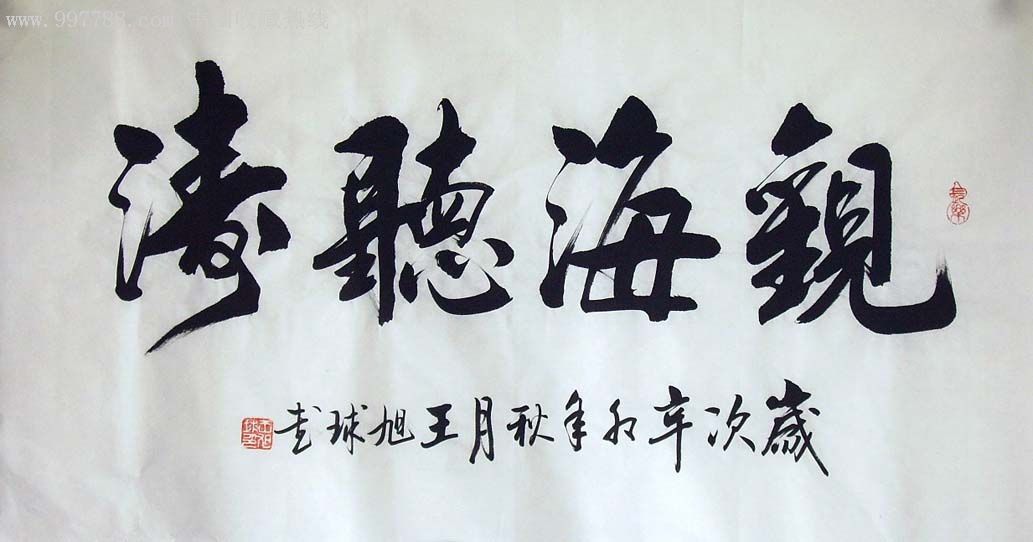 www.997788.com
觀海聽濤
歲次辛卯年秋月王旭球書